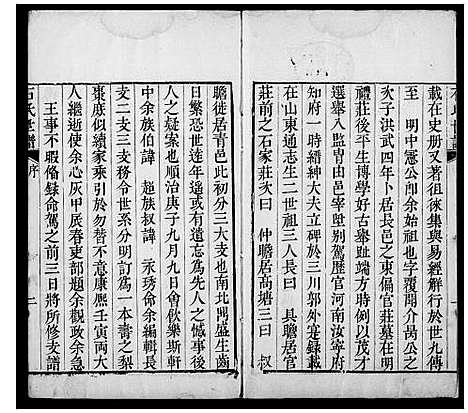 載在史册又著徂徠集與易經解行於世九傳
至　明中憲公卽余始祖也字履開介菴公之
次子洪武四年卜居長邑之東偏官莊墓在明
禮莊後平生博學好古舉趾端方時俱以茂才
選舉入監冑由邑宰歷官河南汝寧府
知府一時縉紳大夫立碑於三川郭外寔錄載
在山東通志生二世祖三人長曰　具瞻居官
莊前之石家莊次曰　仲瞻居高塘三曰　叔
石氏世譜　序　二
瞻徙居青邑此初分三大支也南北門盛生齒
日繁恐世遠年遙或有遺忘爲先人之憾事後
人之疑案也順治庚子九月九日會飲樂斯軒
中余族伯諱　超族叔諱　永琇命余編輯長
二支三支務令世系分明訂為一本壽之梨
棗庶似續家乘引於勿替不意康熙壬寅兩大
人繼逝使余心灰甲辰春吏部題余觀政余急
王事不暇偹錄命駕之前三日將所修支譜